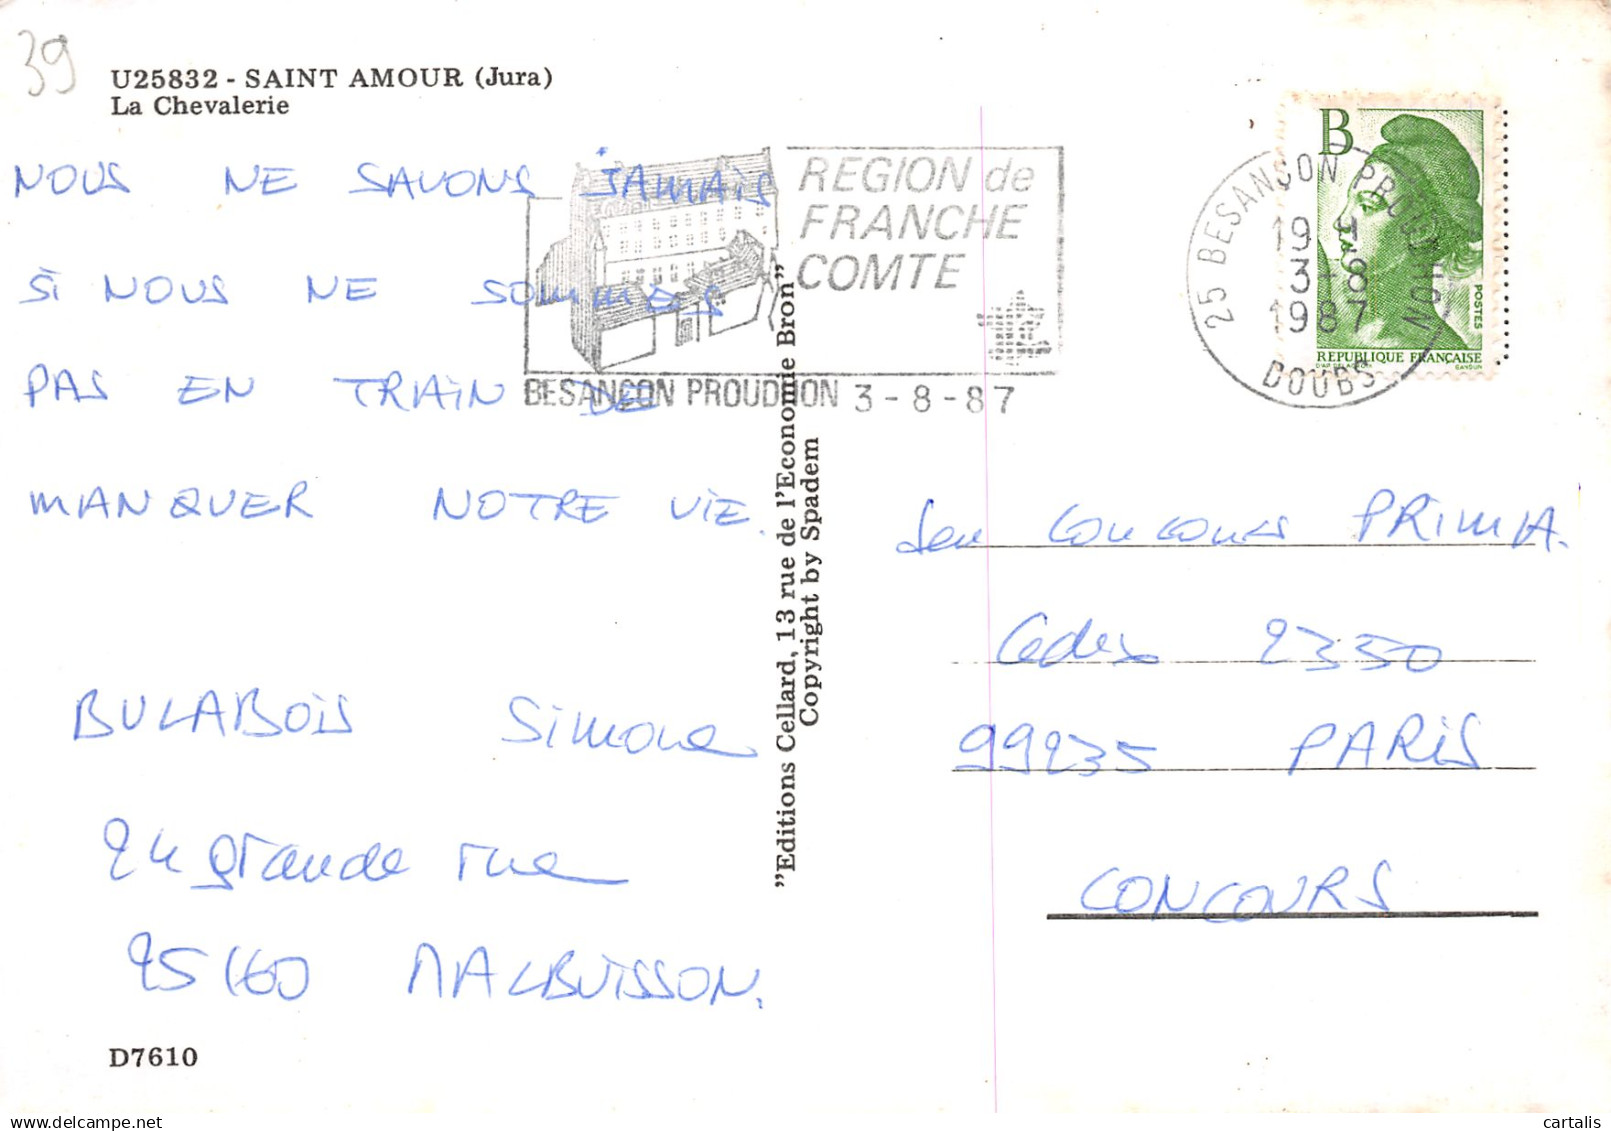 39
U25832 - SAINT AMOUR (Jura)
La Chevalerie
NOUS NE SAVONS JAMAIS
SI NOUS NE SOMMES
PAS EN TRAIN DE
MANQUER NOTRE VIE.
BULABOIS Simone
24 grande rue
25160 MALBUISSON.
D7610
REGION de
FRANCHE
COMTE
BESANCON PROUDHON 3-8-87
"Editions Cellard, 13 rue de l'Economie Bron"
Copyright by Spadem
25 BESANCON PROUDHON
19 H
3-8
1987
DOUBS
B
POSTES
REPUBLIQUE FRANÇAISE
D'AP. DELACROIX GANDON
Jeu Concours PRIMA.
Cedex 2350
99235 PARIS
CONCOURS
cartalis
delcampe.net